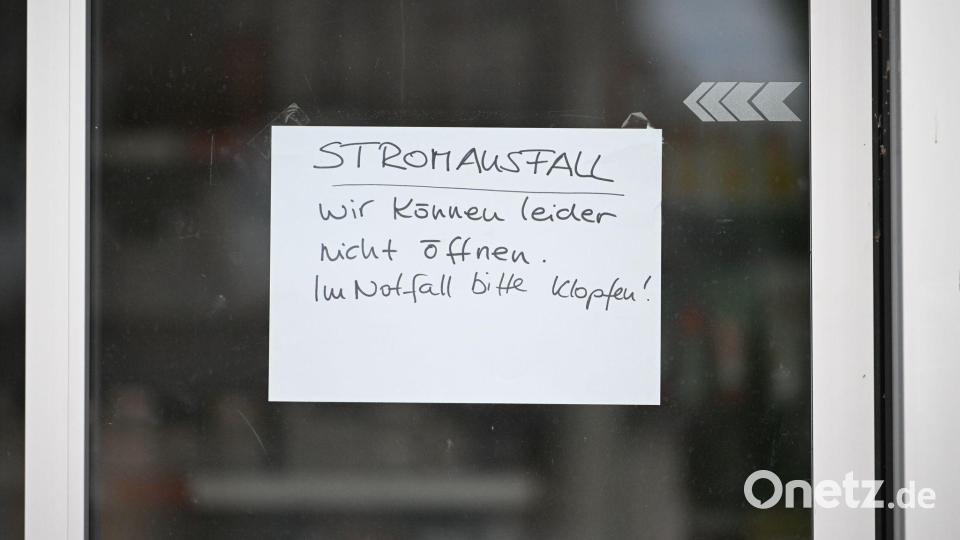 STROMAUSFALL
Wir können leider
nicht öffnen.
Im Notfall bitte klopfen!
Onetz.de